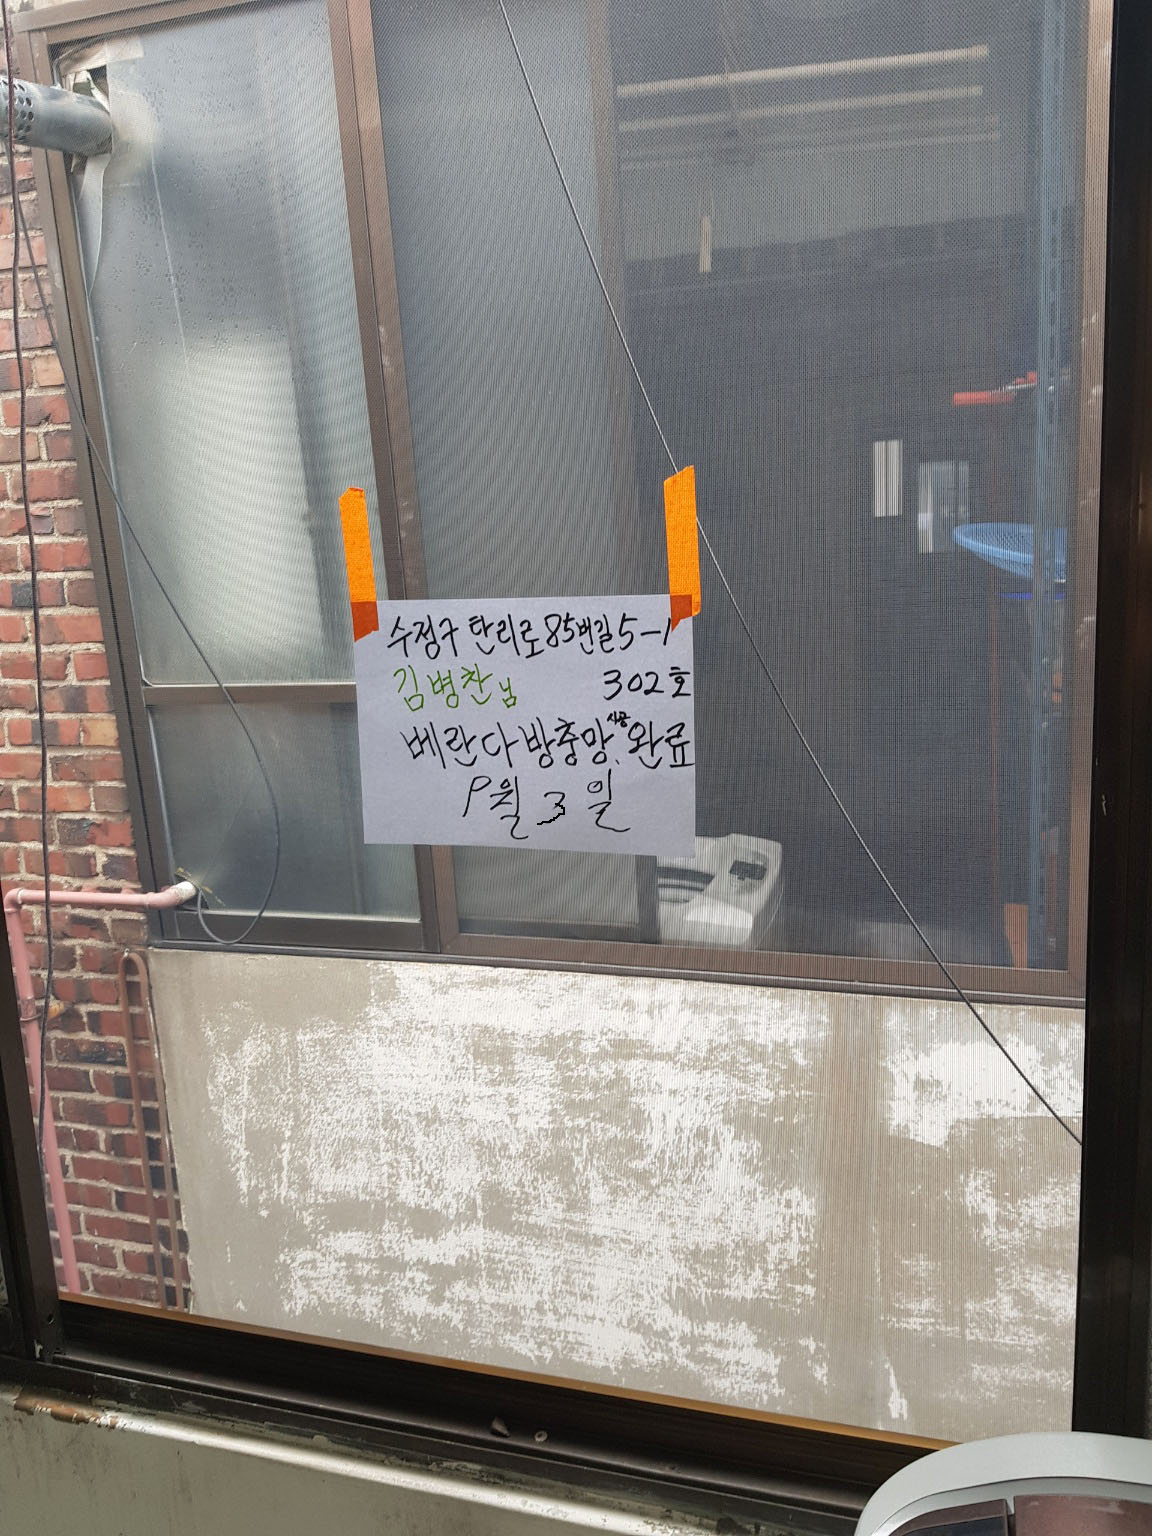 수정구 탄리로85번길 5-1
김병찬님 302호
베란다 방충망 시공 완료
9월 3일